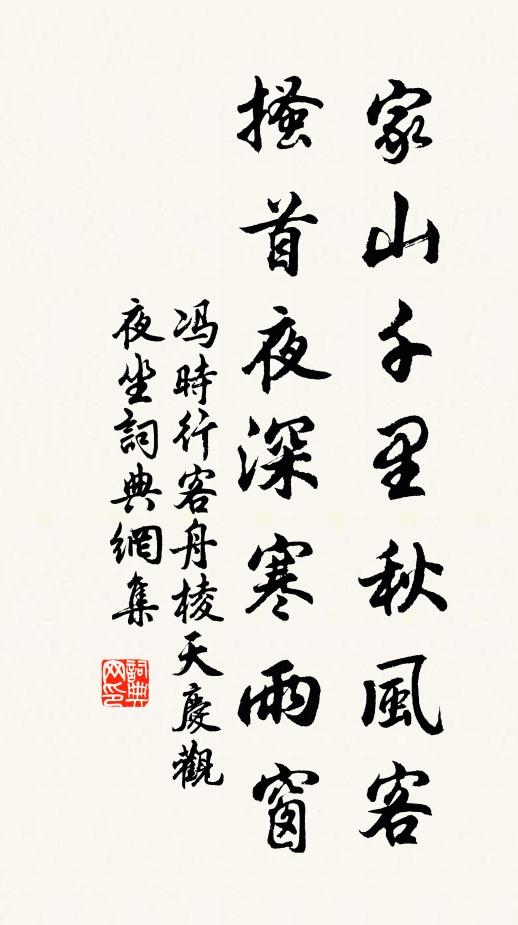 家山千里秋風客
搔首夜深寒雨窗
冯時行客舟棱天慶觀
夜坐詞典網集
詞典网印